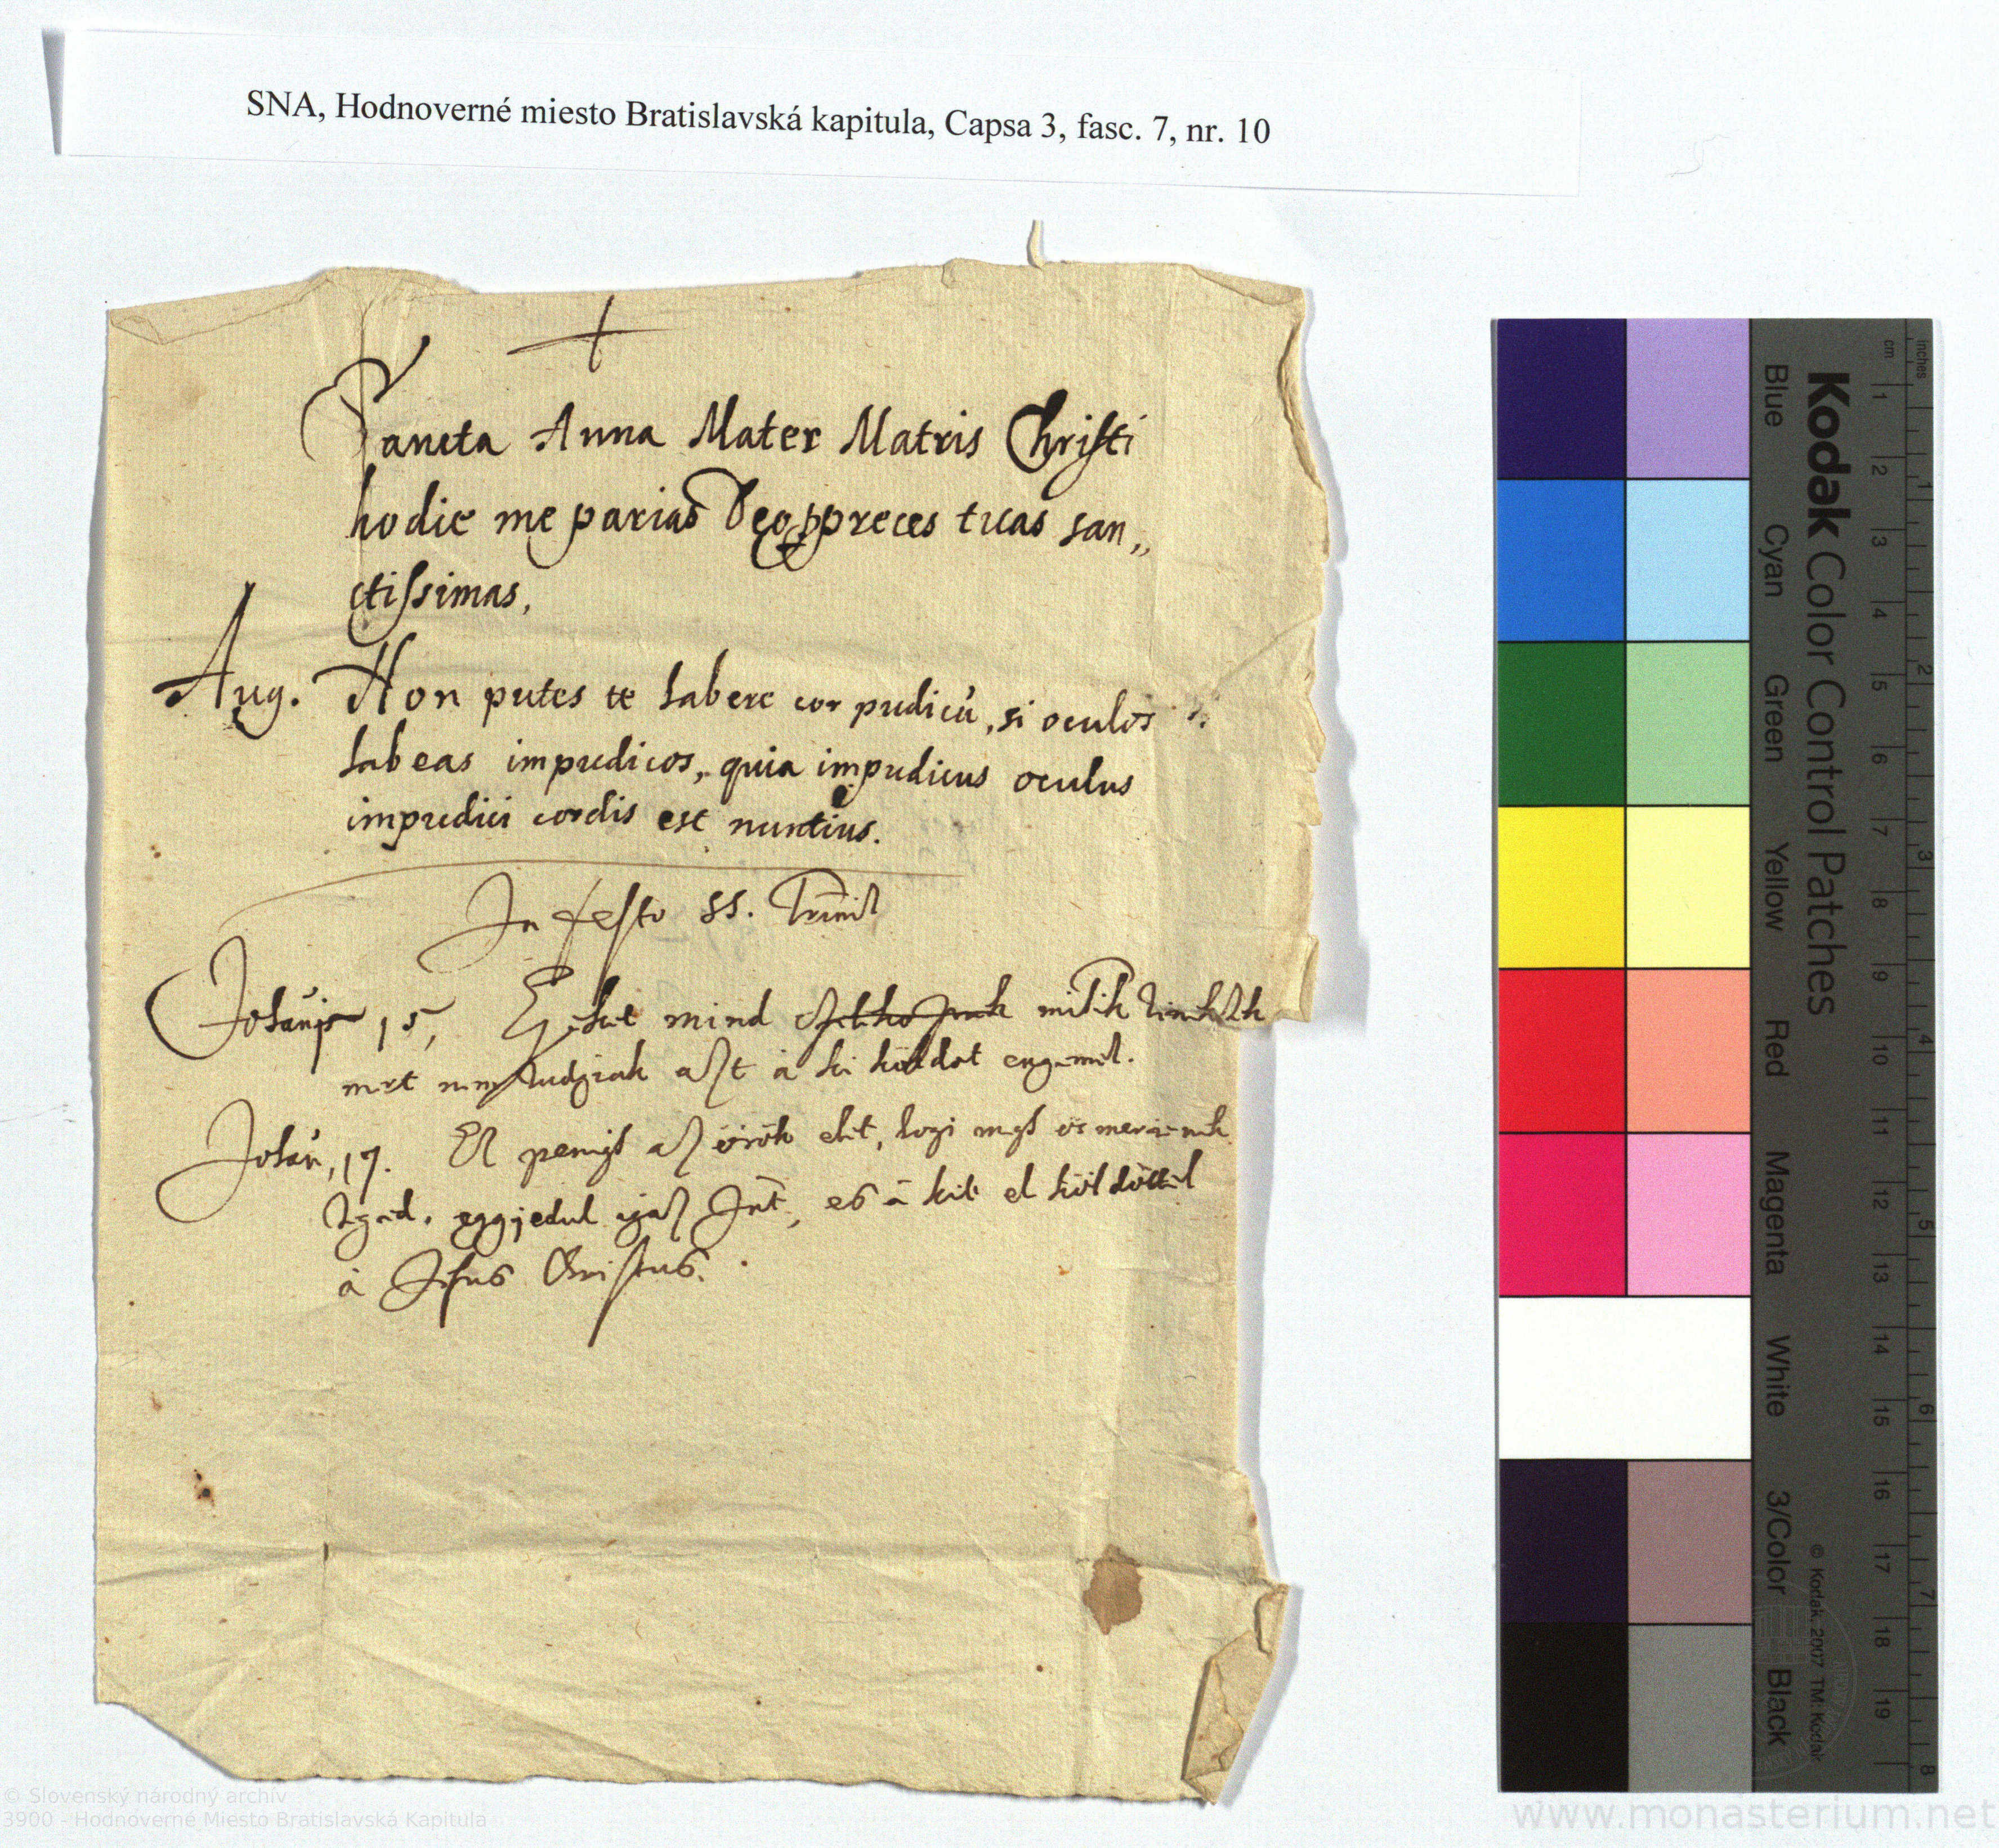 SNA, Hodnoverné miesto Bratislavská kapitula, Capsa 3, fasc. 7, nr. 10
Sancta Anna Mater Matris Christi
hodie me parias Deo p preces tuas san„
ctissimas,
Aug. Non putes te habere cor pudicū, si oculos
habeas impudicos, quia impudicus oculus
impudici cordis est nuntius.
In festo SS. Trinit
Johānis 15, Ezeket mind mivelik
mert nem tudgiak aszt à ki küldöt engemet.
Johān, 17. Ez penigh az örök elet, hogi megh ösmerienek
teged, eggjedul igaz Jnt, es à kit el küldöttel
à Jesus Christus.
Kodak Color Control Patches
Blue Cyan Green Yellow Red Magenta White 3/Color Black
© Kodak, 2007 TM: Kodak
cm 1 2 3 4 5 6 7 8 9 10 11 12 13 14 15 16 17 18 19
inches 1 2 3 4 5 6 7 8
© Slovenský národný archív
3900 - Hodnoverné Miesto Bratislavská Kapitula
www.monasterium.net